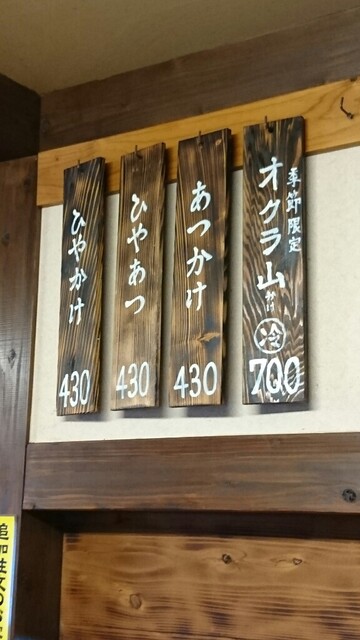 季節限定
オクラ山かけ
冷
700
あつかけ
430
ひやあつ
430
ひやかけ
430
追加注文の